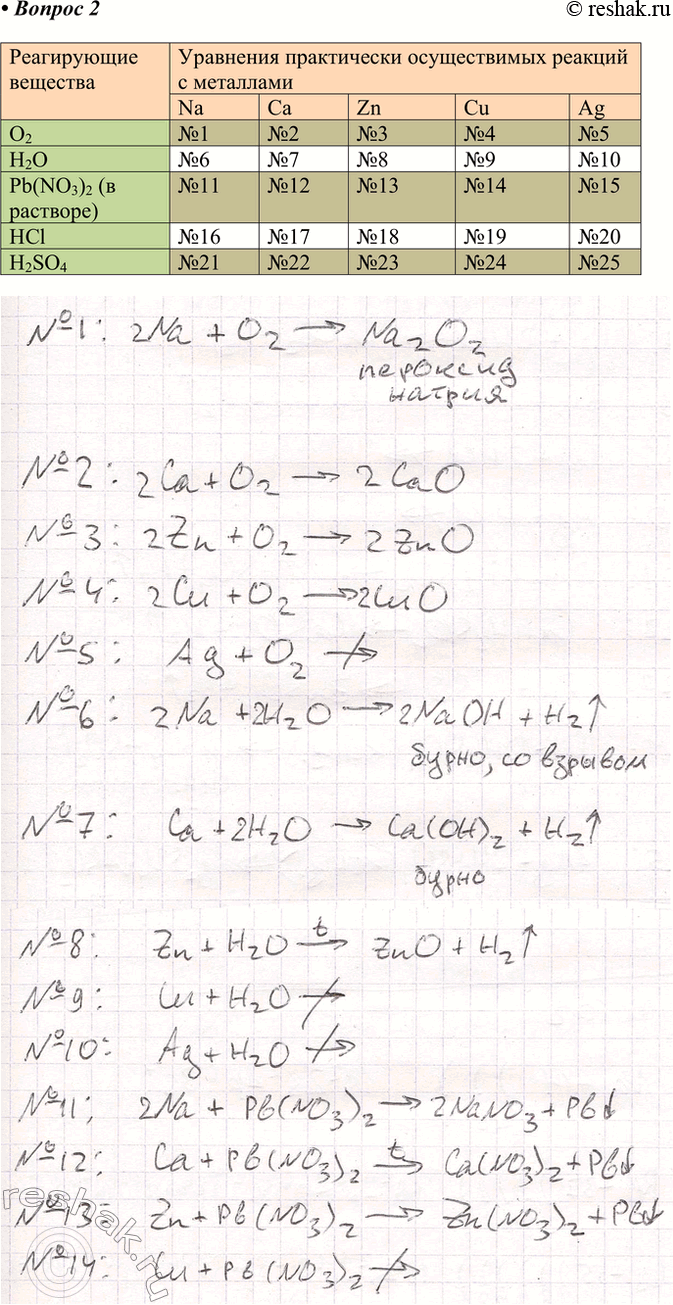 • Вопрос 2
© reshak.ru
Реагирующие вещества
Уравнения практически осуществимых реакций с металлами
Na Ca Zn Cu Ag
O₂ №1 №2 №3 №4 №5
H₂O №6 №7 №8 №9 №10
Pb(NO₃)₂ (в растворе) №11 №12 №13 №14 №15
HCl №16 №17 №18 №19 №20
H₂SO₄ №21 №22 №23 №24 №25
№1: 2Na + O₂ → Na₂O₂
пероксид
натрия
№2: 2Ca + O₂ → 2CaO
№3: 2Zn + O₂ → 2ZnO
№4: 2Cu + O₂ → 2CuO
№5: Ag + O₂ ↛
№6: 2Na + 2H₂O → 2NaOH + H₂↑
бурно, со взрывом
№7: Ca + 2H₂O → Ca(OH)₂ + H₂↑
бурно
№8: Zn + H₂O →ᵗ ZnO + H₂↑
№9: Cu + H₂O ↛
№10: Ag + H₂O ↛
№11: 2Na + Pb(NO₃)₂ → 2NaNO₃ + Pb↓
№12: Ca + Pb(NO₃)₂ →ᵗ Ca(NO₃)₂ + Pb↓
№13: Zn + Pb(NO₃)₂ → Zn(NO₃)₂ + Pb↓
№14: Cu + Pb(NO₃)₂ ↛
reshak.ru
©